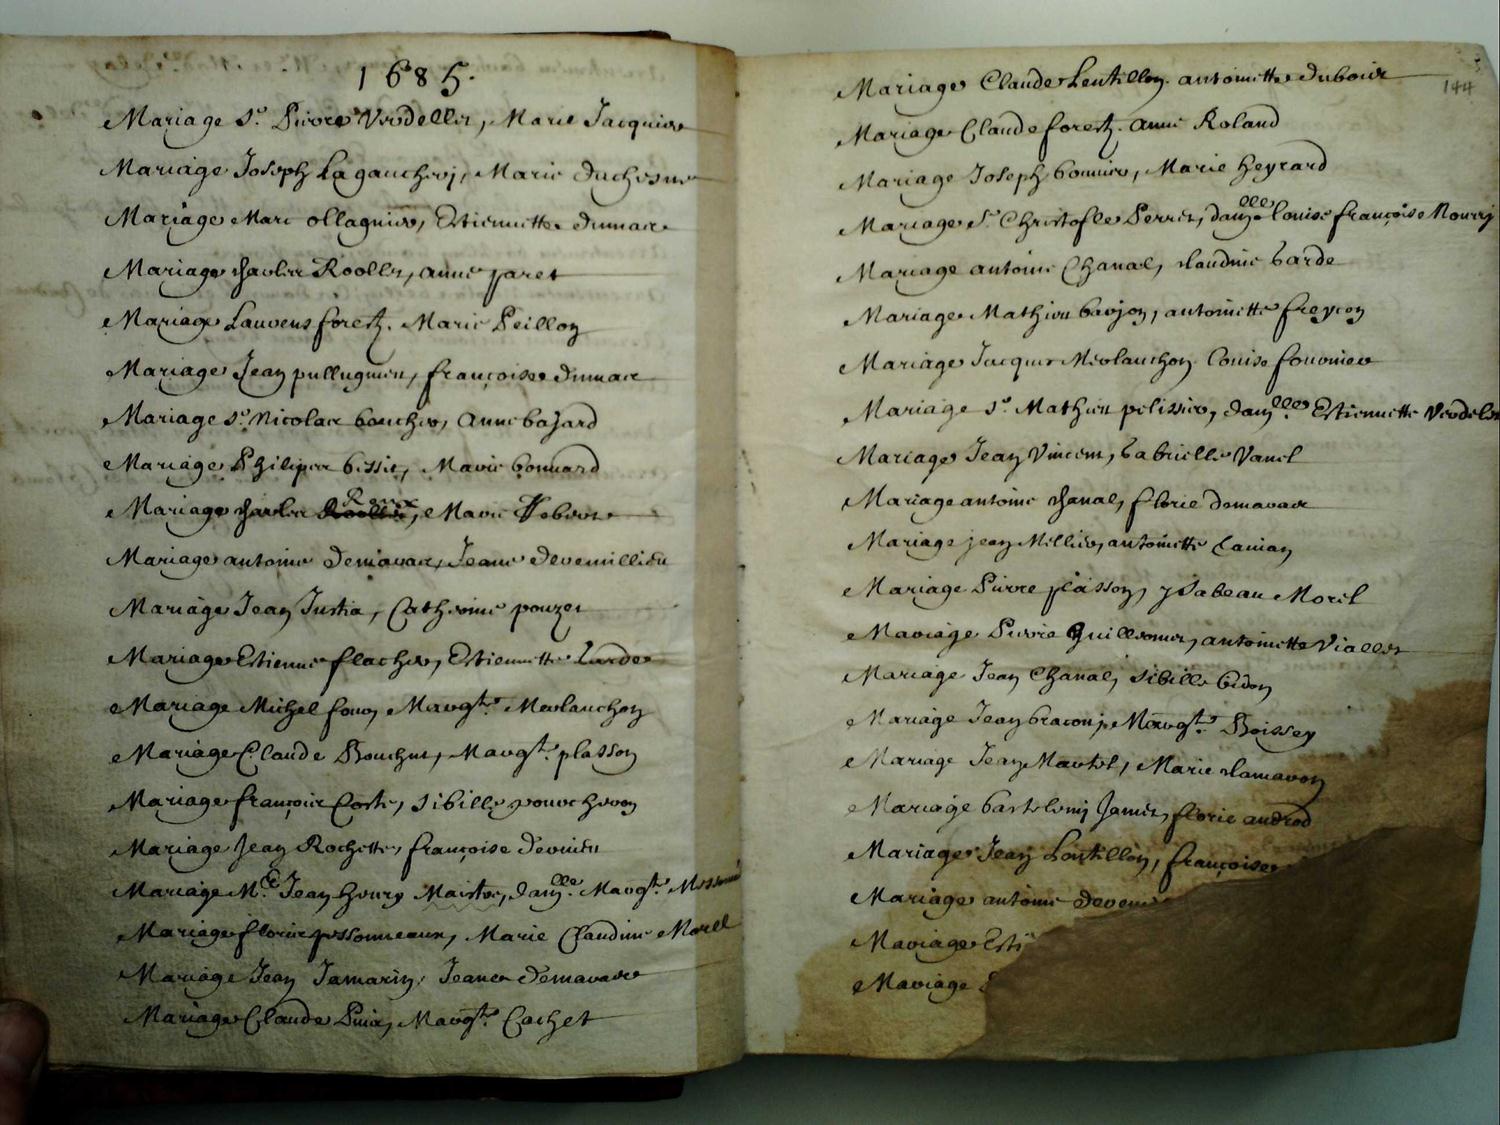 1685.
Mariage Sr. Pierre Verdellet, Marie Jacquier
Mariage Joseph Lagaucherj, Marie duchesne
Mariage Marc ollagnier, Estiennette dumas
Mariage charles Roollet, anne paret
Mariage Laurens forest. Marie Peillon
Mariage Jean pullugnieu, françoise dumas
Mariage sr. Nicolas boucher, Anne bajard
Mariage Philipes bissit, Marie bonnard
Mariage charles Roux, Marie
Mariage antoine Demavas, Jeane devernillieu
Mariage Jean Justia, Catherine pouzet
Mariage Estienne flacher, Estiennette Larde
Mariage Michel fouon, Margte. Merlanchon
Mariage Claude Bouchut, Margte. plasson
Mariage françois Coste, sibille pourcheron
Mariage Jean Rochette, françoise devinieu
Mariage Me. Jean henry Maistre, damlle. Margte.
Mariage floris pessonneaux, Marie Claudine Morell
Mariage Jean Jamarin, Jeane demavas
Mariage Claude Piu, Margte. Cachet
144
Mariage Claude Lentillon. antoinette dubois
Mariage Claude forest. anne Roland
Mariage Joseph bonnier, Marie heyrard
Mariage Sr. Christofle Perret, damlle. louise françoise Mourrj
Mariage antoine Chanal, claudine barde
Mariage Mathieu barjon, antoinette freycon
Mariage Jacques Merlanchon. Louise fournier
Mariage sr. Mathieu pelissier, damlle. Estiennette Verdelet
Mariage Jean Vincent, Gabrielle Vanel
Mariage antoine chanal, florie demavas
Mariage jean Mellier, antoinette
Mariage Pierre plasson, ysabeau Morel
Mariage Pierre Guillermet, antoinette Viallet
Mariage Jean Chanal, sibille bidon
Mariage Jean braconj, Margte. Boissey
Mariage Jean Martel, Marie clamaron
Mariage bartelemj James, florie androd
Mariage Jean Lentillon, françoise
Mariage antoine
Mariage Esti
Mariage